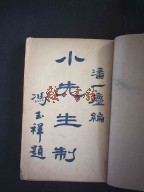 潘一塵編
小先生制
馮玉祥題